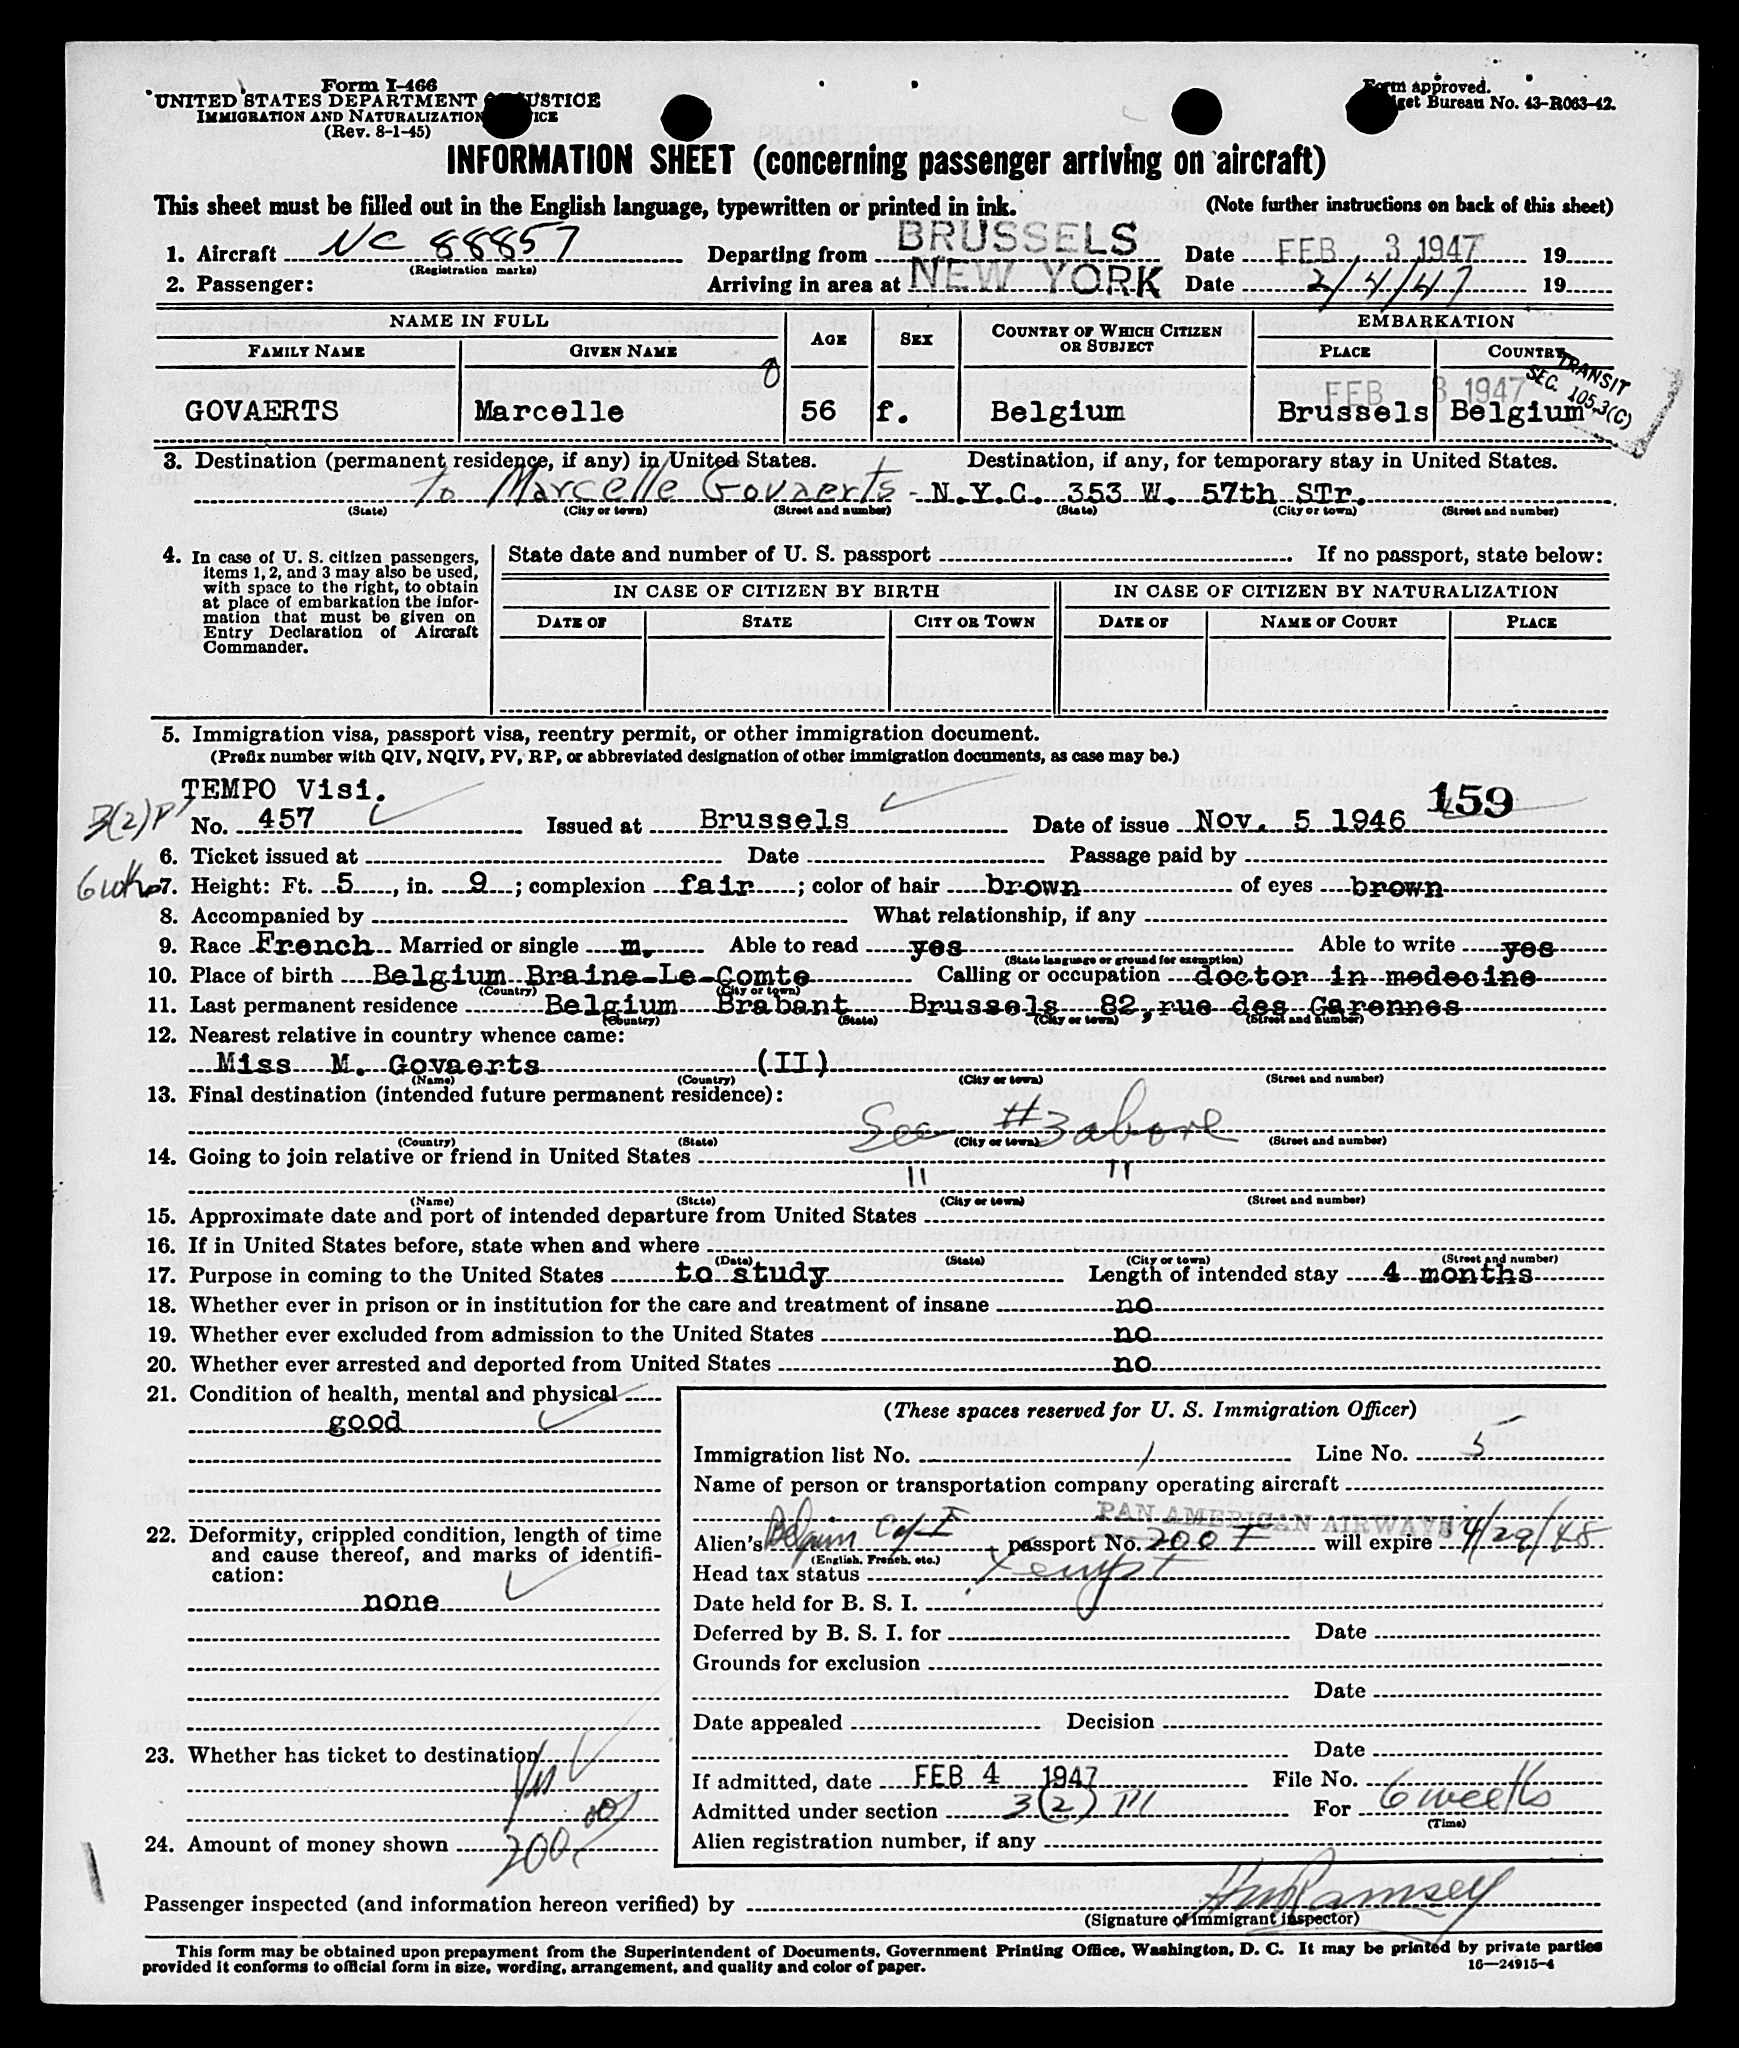 Form I-466
UNITED STATES DEPARTMENT OF JUSTICE
IMMIGRATION AND NATURALIZATION SERVICE
(Rev. 8-1-45)
Form approved.
Budget Bureau No. 43-R063-42.
INFORMATION SHEET (concerning passenger arriving on aircraft)
This sheet must be filled out in the English language, typewritten or printed in ink. (Note further instructions on back of this sheet)
1. Aircraft NC 88857 Departing from BRUSSELS Date FEB 3 1947 19
(Registration marks)
2. Passenger: Arriving in area at NEW YORK Date 2/4/47 19
NAME IN FULL AGE SEX COUNTRY OF WHICH CITIZEN OR SUBJECT EMBARKATION
FAMILY NAME GIVEN NAME PLACE COUNTRY
FEB 3 1947
TRANSIT
SEC. 105.3(C)
GOVAERTS Marcelle 56 f. Belgium Brussels Belgium
3. Destination (permanent residence, if any) in United States. Destination, if any, for temporary stay in United States.
To Marcelle Govaerts - N.Y.C. 353 W. 57th STr.
(State) (City or town) (Street and number) (State) (City or town) (Street and number)
4. In case of U. S. citizen passengers, items 1, 2, and 3 may also be used, with space to the right, to obtain at place of embarkation the information that must be given on Entry Declaration of Aircraft Commander.
State date and number of U. S. passport If no passport, state below:
IN CASE OF CITIZEN BY BIRTH IN CASE OF CITIZEN BY NATURALIZATION
DATE OF STATE CITY OR TOWN DATE OF NAME OF COURT PLACE
5. Immigration visa, passport visa, reentry permit, or other immigration document.
(Prefix number with QIV, NQIV, PV, RP, or abbreviated designation of other immigration documents, as case may be.)
TEMPO Visi. 159
3(2)
No. 457 Issued at Brussels Date of issue Nov. 5 1946
6. Ticket issued at Date Passage paid by
6 wks
7. Height: Ft. 5, in. 9; complexion fair; color of hair brown of eyes brown
8. Accompanied by What relationship, if any
9. Race French Married or single m. Able to read yes Able to write yes
(State language or ground for exemption)
10. Place of birth Belgium Braine-Le-Comte Calling or occupation doctor in medecine
(Country) (City or town)
11. Last permanent residence Belgium Brabant Brussels 82, rue des Garennes
(Country) (State) (City or town) (Street and number)
12. Nearest relative in country whence came:
Miss M. Govaerts (II)
(Name) (Country) (City or town) (Street and number)
13. Final destination (intended future permanent residence):
See #3 above
(Country) (State) (City or town) (Street and number)
14. Going to join relative or friend in United States
" "
(Name) (State) (City or town) (Street and number)
15. Approximate date and port of intended departure from United States
16. If in United States before, state when and where
(Date) (State) (City or town) (Street and number)
17. Purpose in coming to the United States to study Length of intended stay 4 months
18. Whether ever in prison or in institution for the care and treatment of insane no
19. Whether ever excluded from admission to the United States no
20. Whether ever arrested and deported from United States no
21. Condition of health, mental and physical
good
22. Deformity, crippled condition, length of time and cause thereof, and marks of identification:
none
23. Whether has ticket to destination
Yes
24. Amount of money shown 200.00
(These spaces reserved for U. S. Immigration Officer)
Immigration list No. 1 Line No. 5
Name of person or transportation company operating aircraft
PAN AMERICAN AIRWAYS
Alien's Belgium passport No. 2007 will expire 4/29/48
(English, French, etc.)
Head tax status Xempt
Date held for B. S. I.
Deferred by B. S. I. for Date
Grounds for exclusion
Date
Date appealed Decision
Date
If admitted, date FEB 4 1947 File No.
Admitted under section 3(2) For 6 weeks
(Time)
Alien registration number, if any
Passenger inspected (and information hereon verified) by Ramsey
(Signature of immigrant inspector)
This form may be obtained upon prepayment from the Superintendent of Documents, Government Printing Office, Washington, D. C. It may be printed by private parties
provided it conforms to official form in size, wording, arrangement, and quality and color of paper. 16—24915-4